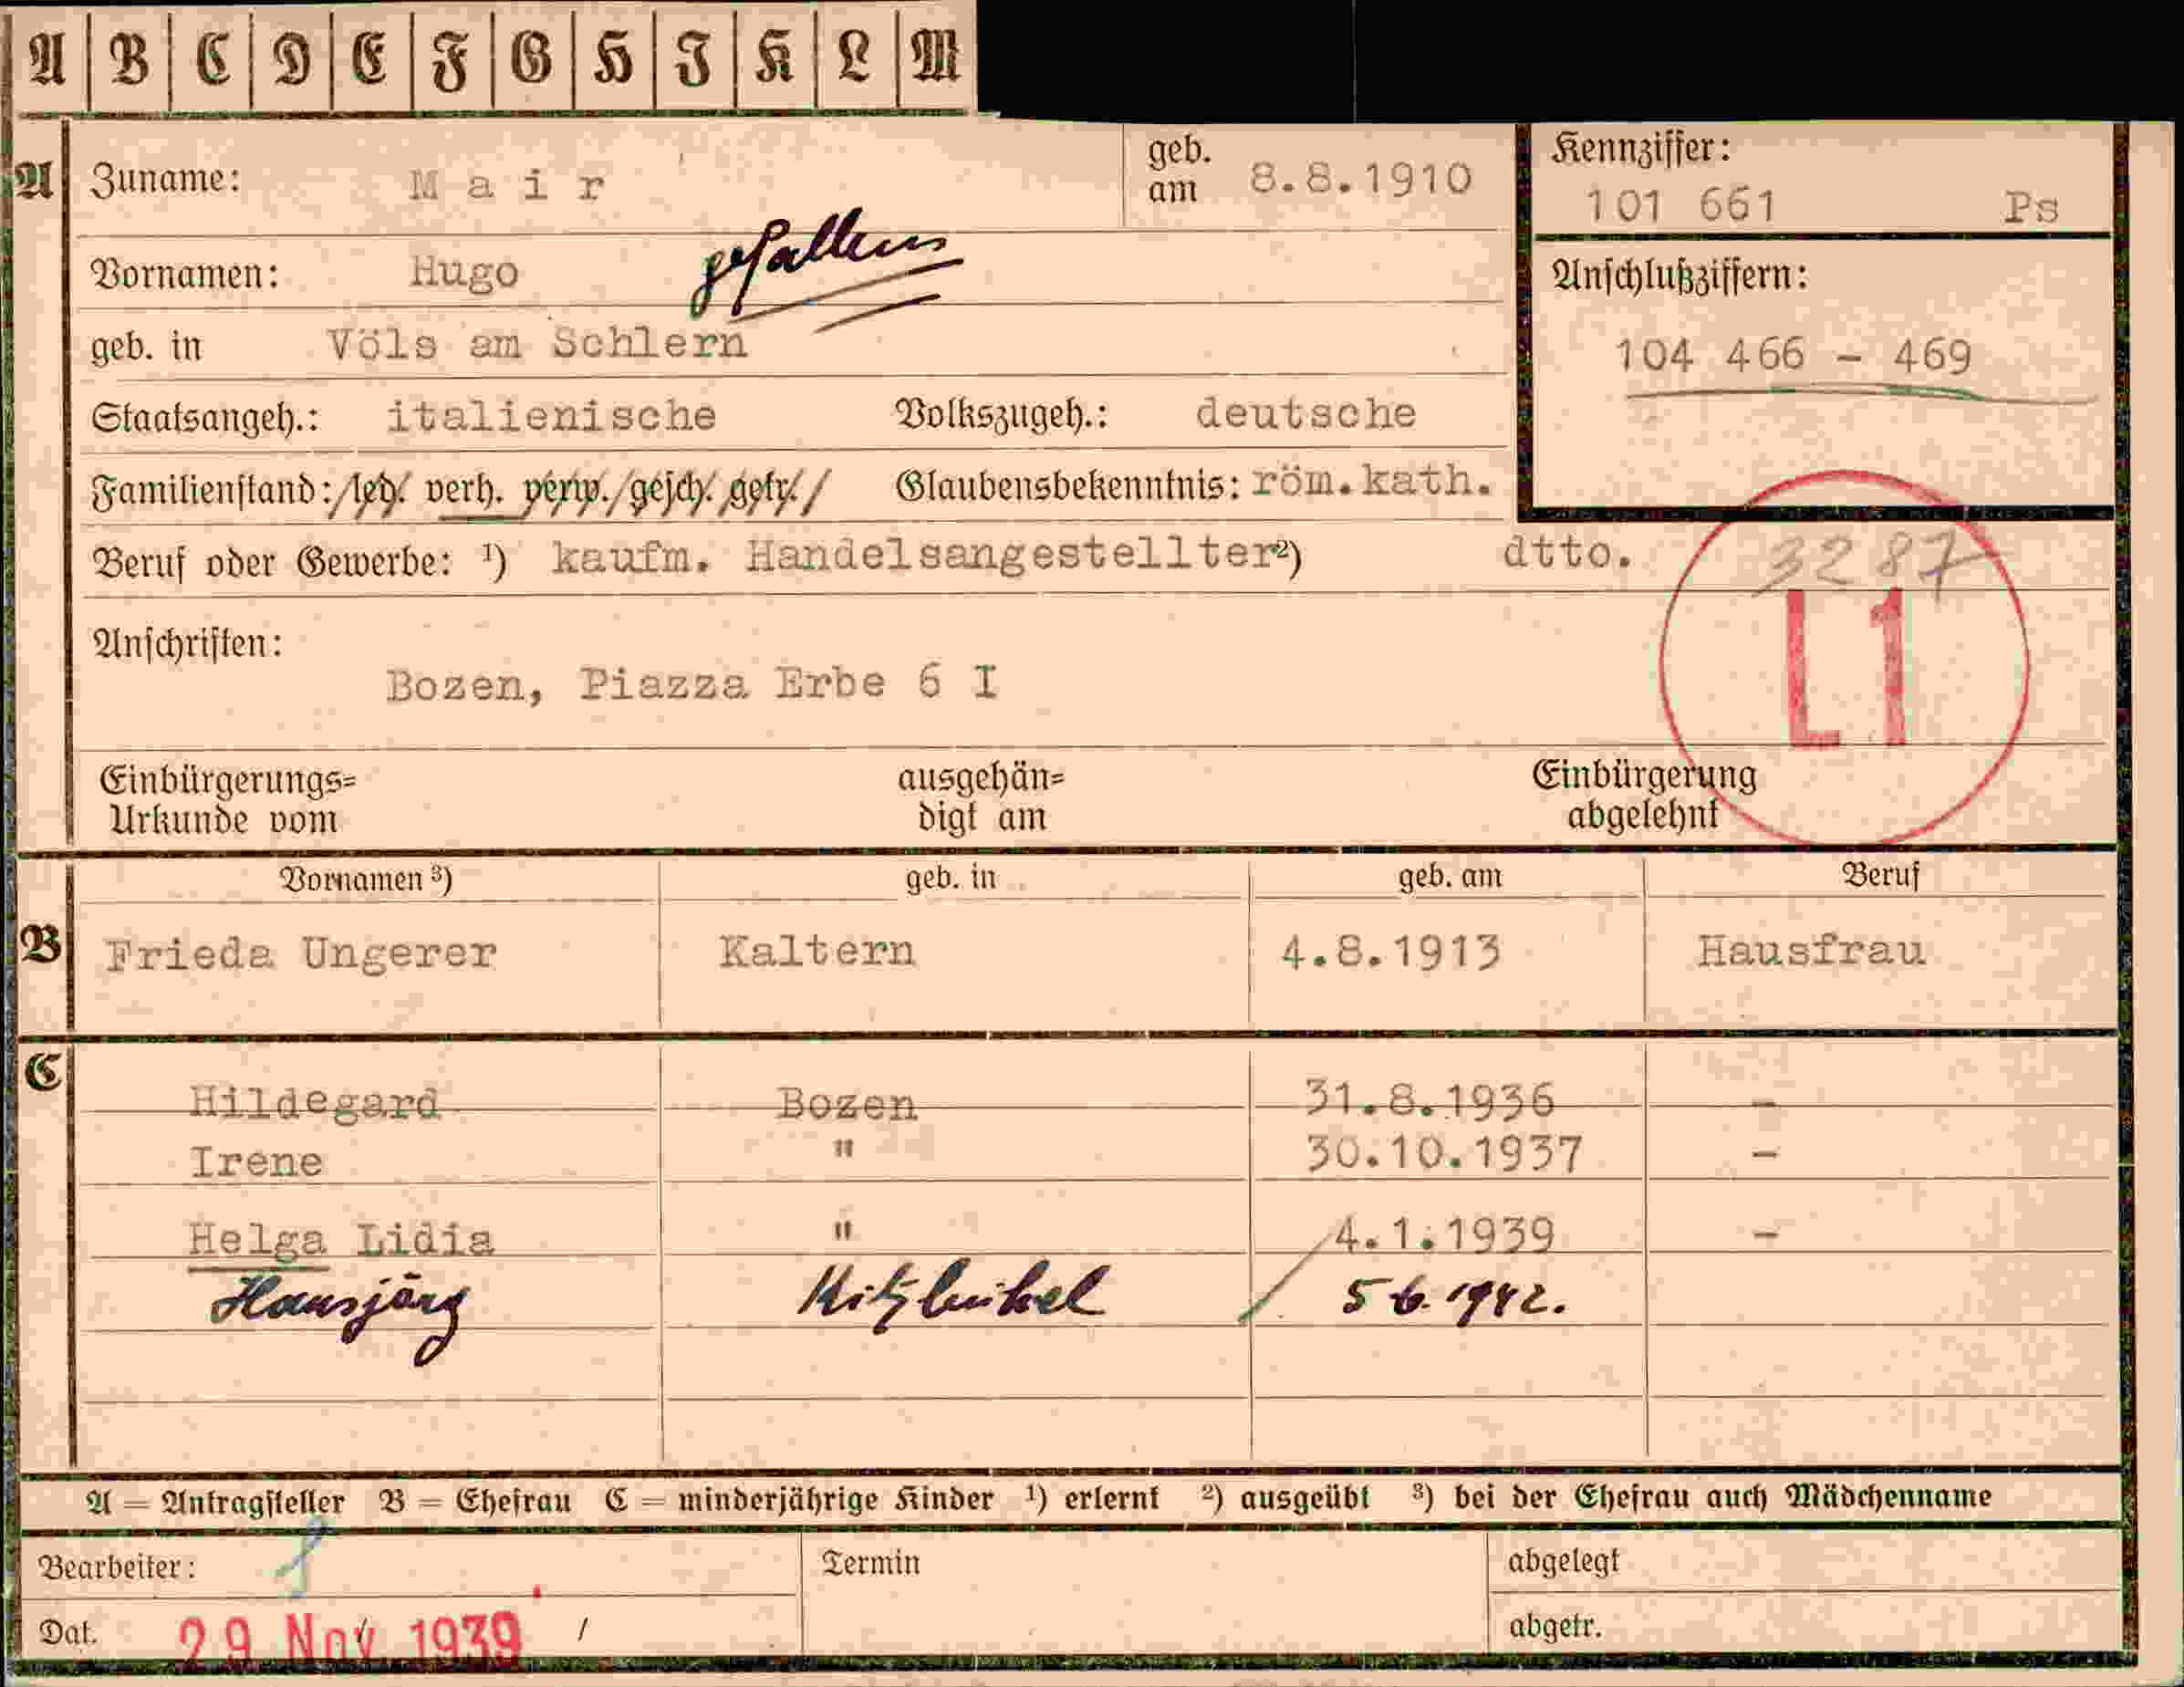 A B C D E F G H I K L M
A Zuname: Mair geb. am 8.8.1910
Kennziffer: 101 661 Ps
Vornamen: Hugo gefallen
Anschlußziffern:
geb. in Völs am Schlern
104 466 - 469
Staatsangeh.: italienische Volkszugeh.: deutsche
Familienstand: led. verh. verw. gesch. getr. Glaubensbekenntnis: röm.kath.
Beruf oder Gewerbe: ¹) kaufm. Handelsangestellter ²) dtto. 3287
L1
Anschriften:
Bozen, Piazza Erbe 6 I
Einbürgerungs= ausgehän= Einbürgerung
Urkunde vom digt am abgelehnt
Vornamen ³) geb. in geb. am Beruf
B Frieda Ungerer Kaltern 4.8.1913 Hausfrau
C
Hildegard Bozen 31.8.1936 -
Irene " 30.10.1937 -
Helga Lidia " 4.1.1939 -
Hansjörg Kitzbühel 5 6. 1942.
A = Antragsteller B = Ehefrau C = minderjährige Kinder ¹) erlernt ²) ausgeübt ³) bei der Ehefrau auch Mädchenname
Bearbeiter: Termin abgelegt
Dat. 29 Nov. 1939 / abgetr.